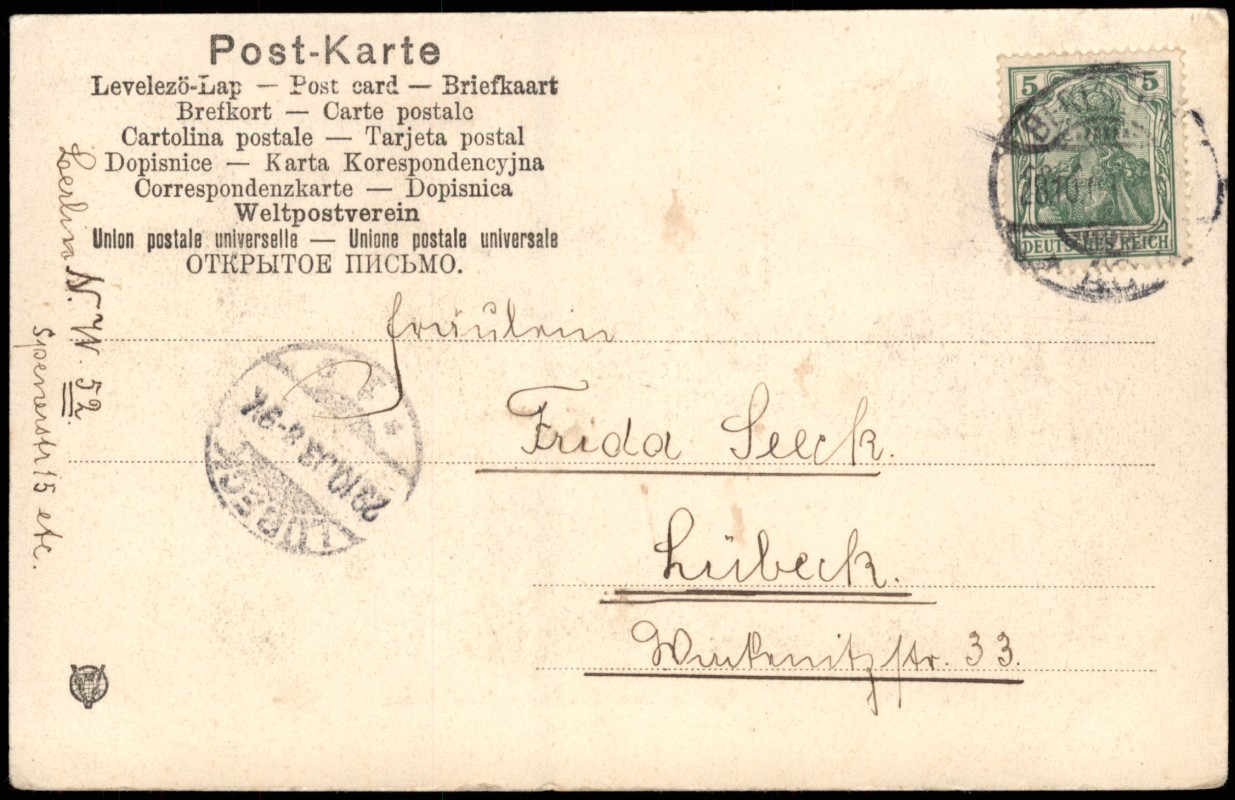 Post-Karte
Levelezö-Lap — Post card — Briefkaart
Brefkort — Carte postale
Cartolina postale — Tarjeta postal
Dopisnice — Karta Korespondencyjna
Correspondenzkarte — Dopisnica
Weltpostverein
Union postale universelle — Unione postale universale
ОТКРЫТОЕ ПИСЬМО.
5 5
DEUTSCHES REICH
28.10.
Berlin N.W. 52.
Spenerstr 15 etc.
Fräulein
Frida Seeck.
Lübeck.
Wakenitzstr. 33.
29.10.03. 8-9V.
LÜBECK